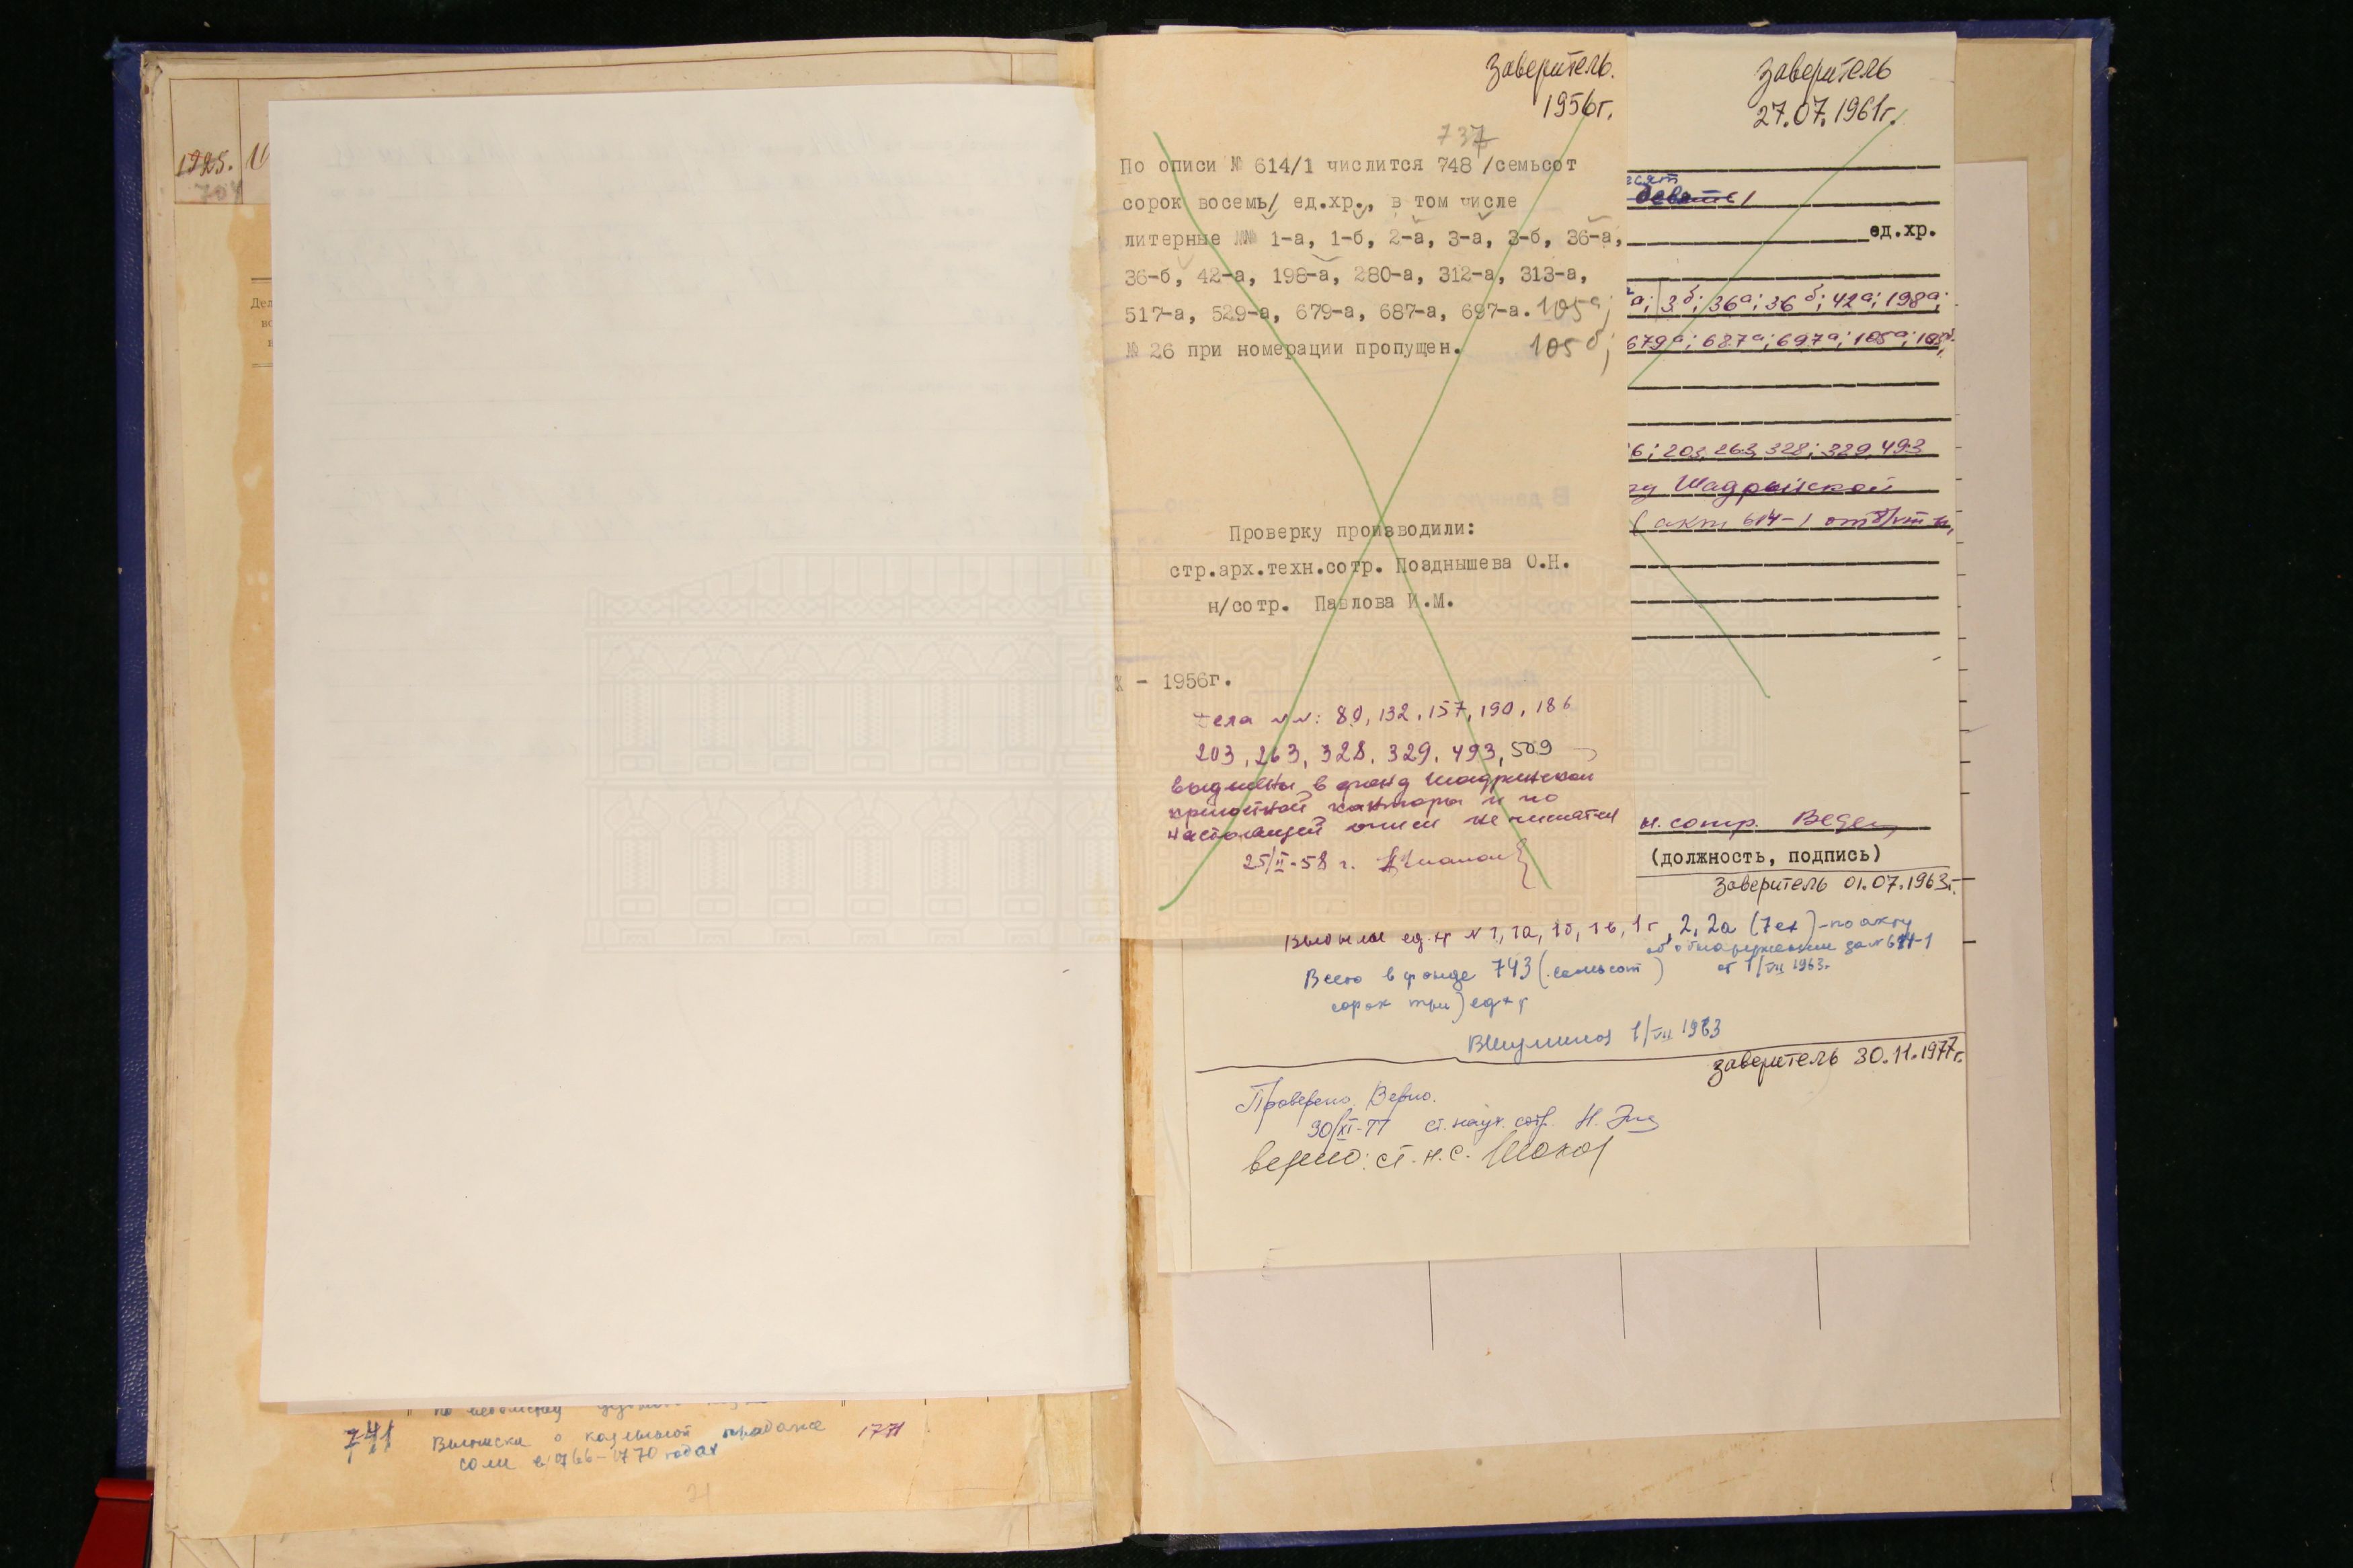 1925.
704
Заверитель.
1956г.
737
По описи № 614/1 числится 748 /семьсот
сорок восемь/ ед.хр., в том числе
литерные №№ 1-а, 1-б, 2-а, 3-а, 3-б, 36-а,
36-б, 42-а, 198-а, 280-а, 312-а, 313-а,
517-а, 529-а, 679-а, 687-а, 697-а. 105а;
№ 26 при номерации пропущен. 105б;
Проверку производили:
стр.арх.техн.сотр. Позднышева О.Н.
н/сотр. Павлова И.М.
- 1956г.
дела №№: 80, 132, 157, 190, 186
203, 263, 328, 329, 493, 509
выделены в фонд Шадринской
крепостной конторы и по
настоящей описи не числятся
25/II-58 г.
Заверитель
27.07.1961г.
ед.хр.
а; 3б; 36а; 36б; 42а; 198а;
679а; 687а; 697а; 105а; 105б
6; 203, 263, 328; 329, 493
Шадринской
(акт 614-1 от
н. сотр.
(должность, подпись)
Заверитель 01.07.1963г.
ед. хр №1, 1а, 1б, 1в, 1г, 2, 2а (7ех) - по акту
об обнаружении за №614-1
от 1/VII 1963г.
Всего в фонде 743 (семьсот
сорок три) ед хр
1/VII 1963
заверитель 30.11.1977г.
Проверено. Верно.
30/XI-77 ст. науч. сотр. Н.
ст. н.с.
по ведомству
741 Выписки о казенной продаже 1771
соли в 1766-1770 годах